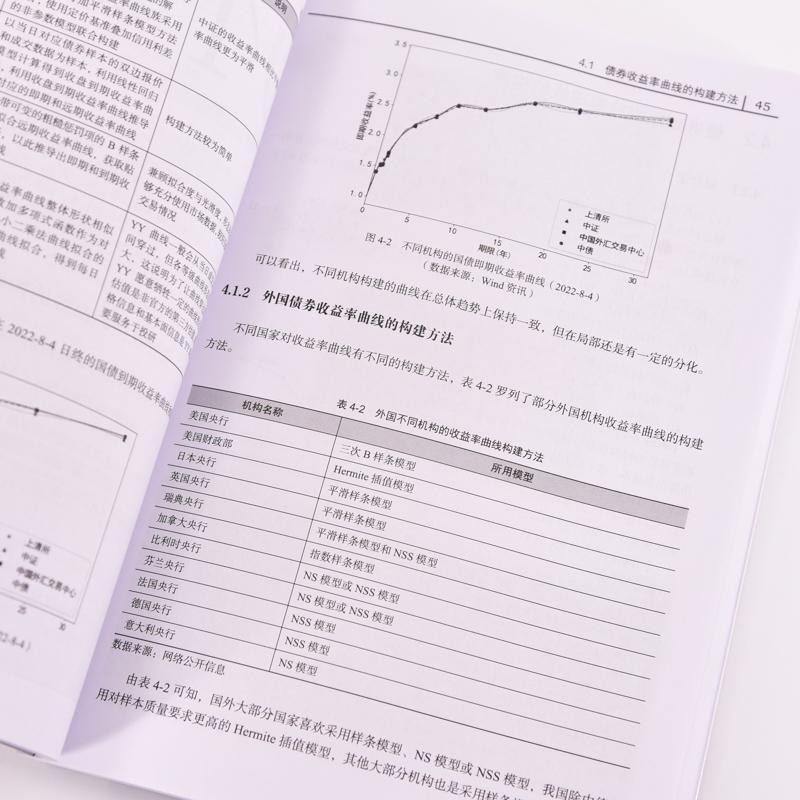 说明
使用定价基准叠加信用利差
的非参数模型联合构建
率曲线更为平滑
以当日对应债券样本的双边报价
和成交数据为样本，利用线性回归
模型计算得到收盘到期收益率曲
利用收盘到期收益率曲线推导
对应的即期和远期收益率曲线
构建方法较为简单
带可变的粗糙惩罚项的 B 样条
拟合远期收益率曲线，获取贴
以此推导出即期和到期收
兼顾拟合度与光滑度，
够充分使用市场数据，
交易情况
益率曲线整体形状相似
数加多项式函数作为对
小二乘法曲线拟合的
曲线拟合，得到每日
YY 曲线一般会从当日
间穿过，但各等级曲线
大，这说明为了让曲线
YY 愿意牺牲一定的
估值是非官方的第三方
格信息和基本面信息是
要服务于投研
2022-8-4 日终的国债到期收益率曲线
上清所
中证
中国外汇交易中心
中债
25
30
4.1 债券收益率曲线的构建方法 45
3.5
3.0
2.5
2.0
1.5
1.0
即期收益率(%)
0
5
10
15
20
25
30
期限(年)
上清所
中证
中国外汇交易中心
中债
图 4-2 不同机构的国债即期收益率曲线（2022-8-4）
（数据来源：Wind 资讯）
可以看出，不同机构构建的曲线在总体趋势上保持一致，但在局部还是有一定的分化。
4.1.2 外国债券收益率曲线的构建方法
不同国家对收益率曲线有不同的构建方法，表 4-2 罗列了部分外国机构收益率曲线的构建
方法。
表 4-2 外国不同机构的收益率曲线构建方法
机构名称 所用模型
美国央行 三次 B 样条模型
美国财政部 Hermite 插值模型
日本央行 平滑样条模型
英国央行 平滑样条模型
瑞典央行 平滑样条模型和 NSS 模型
加拿大央行 指数样条模型
比利时央行 NS 模型或 NSS 模型
芬兰央行 NS 模型或 NSS 模型
法国央行 NSS 模型
德国央行 NSS 模型
意大利央行 NS 模型
数据来源：网络公开信息
由表 4-2 可知，国外大部分国家喜欢采用样条模型、NS 模型或 NSS 模型，我国除中
用对样本质量要求更高的 Hermite 插值模型，其他大部分机构也是采用样条